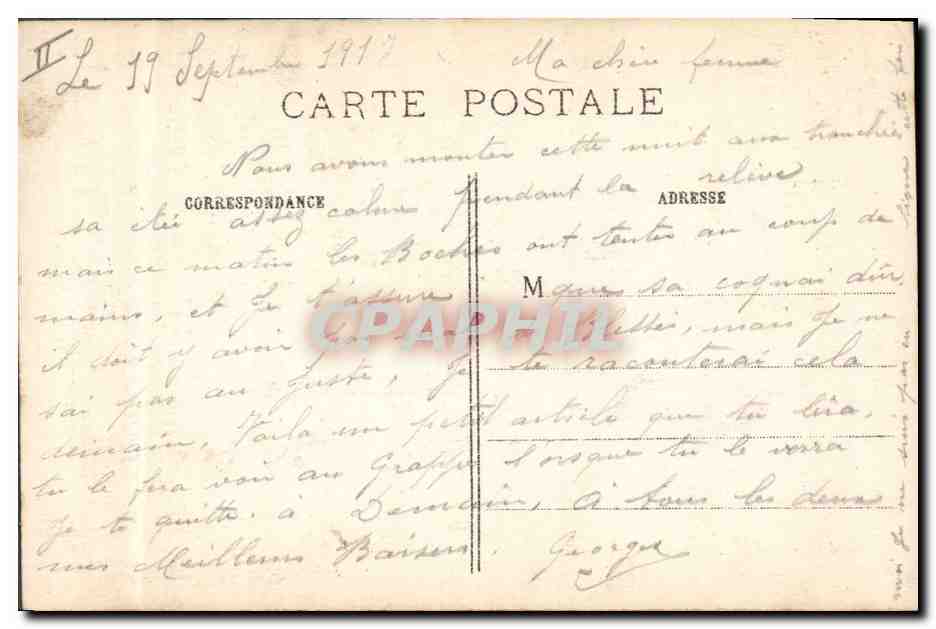 II
Le 19 Septembre 1917 Ma chère femme
CARTE POSTALE
Nous avons monter cette nuit aux tranchées
CORRESPONDANCE
ADRESSE
sa été assez calme pendant la relève
mais ce matin les Boches ont tentés au coup de
mains, et Je t'assure M que sa cognai dûr
il doit y avoir pas Blessés, mais Je ne
sai pas au Juste, Je te raconterai cela
demain, Voila un petit article que tu lira,
tu le fera voir au Grappe lorsque tu le verra
Je te quitte à Demain, à tous les deux
mes Meilleurs Baisers. Georges
moi Je ne suis pas en ligne cette foi
CPAPHIL